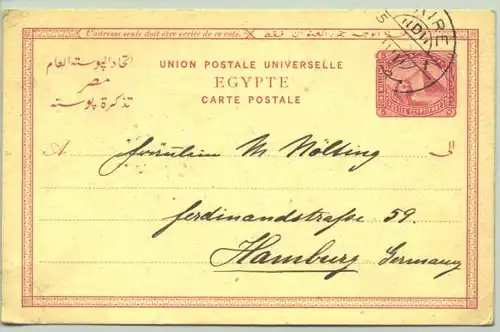 L'adresse seule doit être écrite de ce côté.
اتحاد البوستة العام
مصر
تذكرة بوسته
UNION POSTALE UNIVERSELLE
EGYPTE
CARTE POSTALE
A
الى
Fräulein M. Nölting
Ferdinandstraße 59.
Hamburg Germany